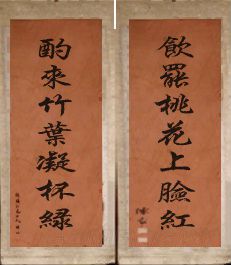 飲罷桃花上臉紅
酌來竹葉凝杯綠